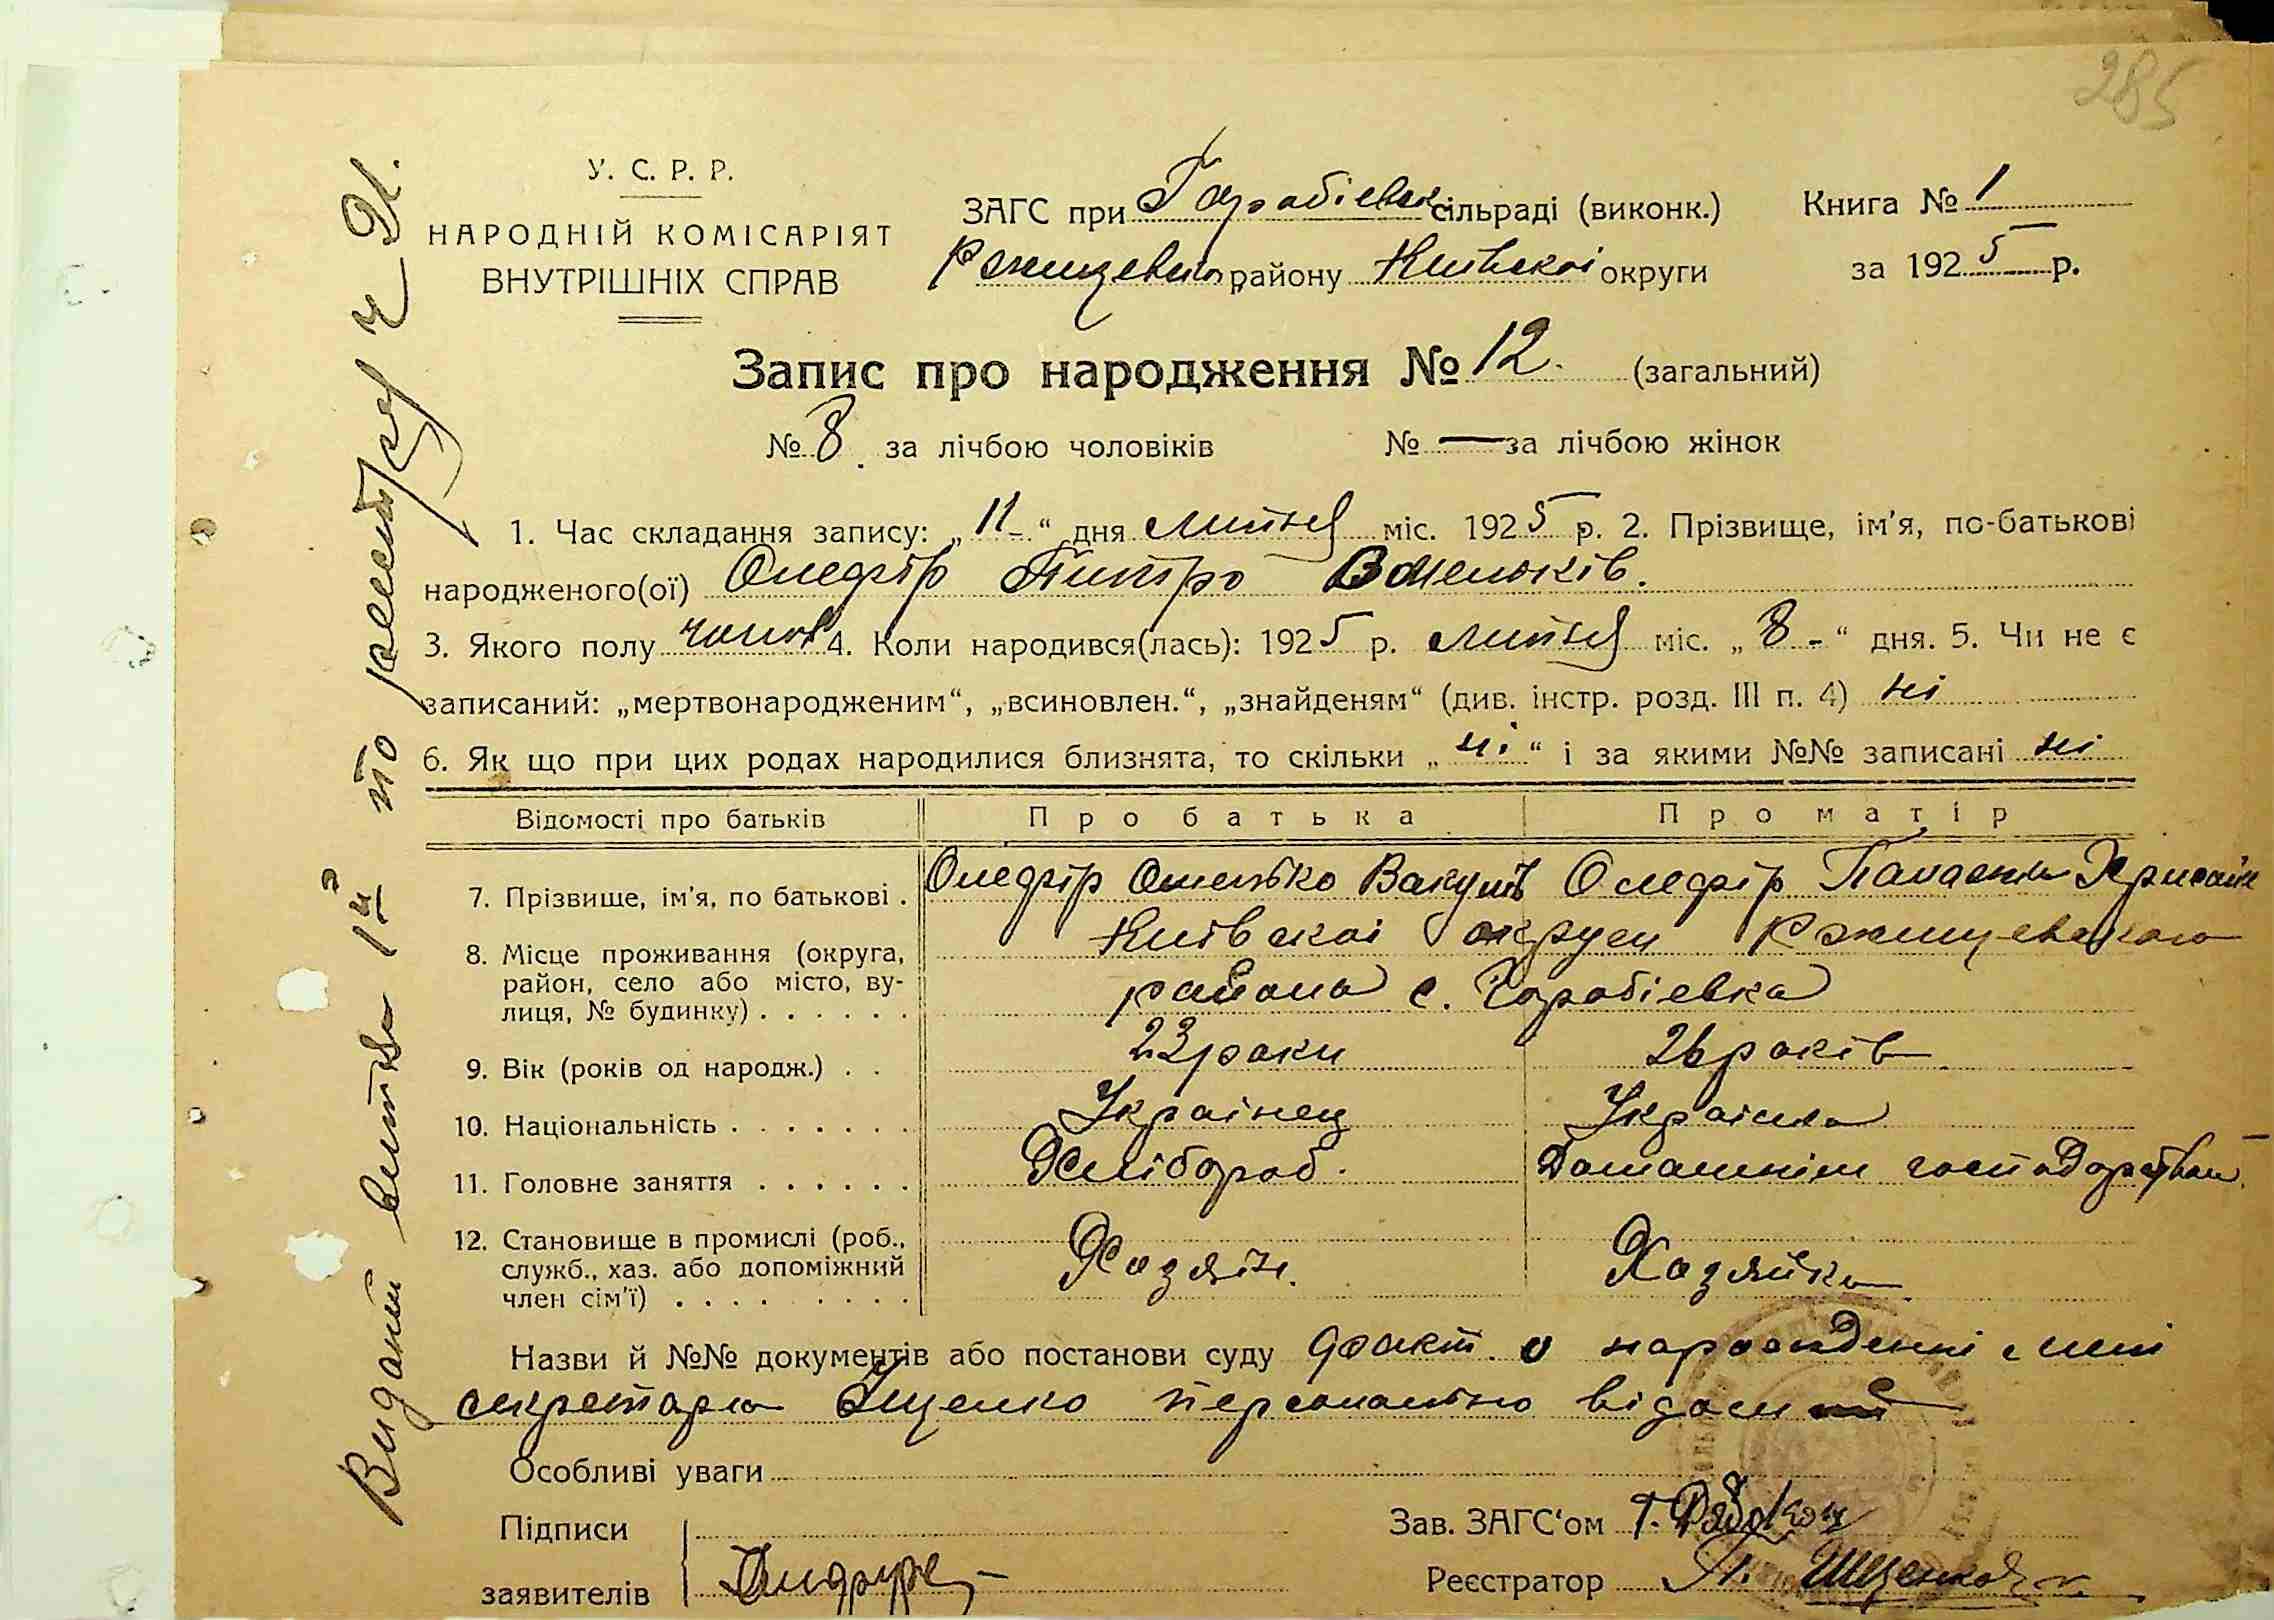 285
У. С. Р. Р.
НАРОДНІЙ КОМІСАРІЯТ
ВНУТРІШНІХ СПРАВ
ЗАГС при сільраді (виконк.)
району Київскоі округи
Книга № 1
за 1925 р.
Запис про народження № 12. (загальний)
№ 8. за лічбою чоловіків № — за лічбою жінок
1. Час складання запису: „11-“ дня липня міс. 1925 р. 2. Прізвище, ім'я, по-батькові
народженого(ої) Оледзір Питро Омельків.
3. Якого полу чолов 4. Коли народився(лась): 1925 р. липня міс. „8-“ дня. 5. Чи не є
записаний: „мертвонародженим“, „всиновлен.“, „знайденям“ (див. інстр. розд. III п. 4) ні
6. Як що при цих родах народилися близнята, то скільки „ні“ і за якими №№ записані ні
Відомості про батьків Про батька Про матір
7. Прізвище, ім'я, по батькові . Оледзір Омелько Вакулів Оледзір
8. Місце проживання (округа, Київскоі округи Ржищевского
район, село або місто, ву- района с.
лиця, № будинку) . . . . . .
9. Вік (років од народж.) . . 23 роки 26 років
10. Національність . . . . . . . Украінец Украінка
11. Головне заняття . . . . . . Хлібороб. Домашнім господарством
12. Становище в промислі (роб.,
служб., хаз. або допоміжний Хозяїн. Хазяйка
член сім'ї) . . . . . . . . .
Назви й №№ документів або постанови суду факт о народженні мені
секретарю Іщенко персонально відом
Особливі уваги
Підписи
заявителів
Зав. ЗАГС'ом
Реєстратор
Видані витяг 1й по реєстру ч 21.